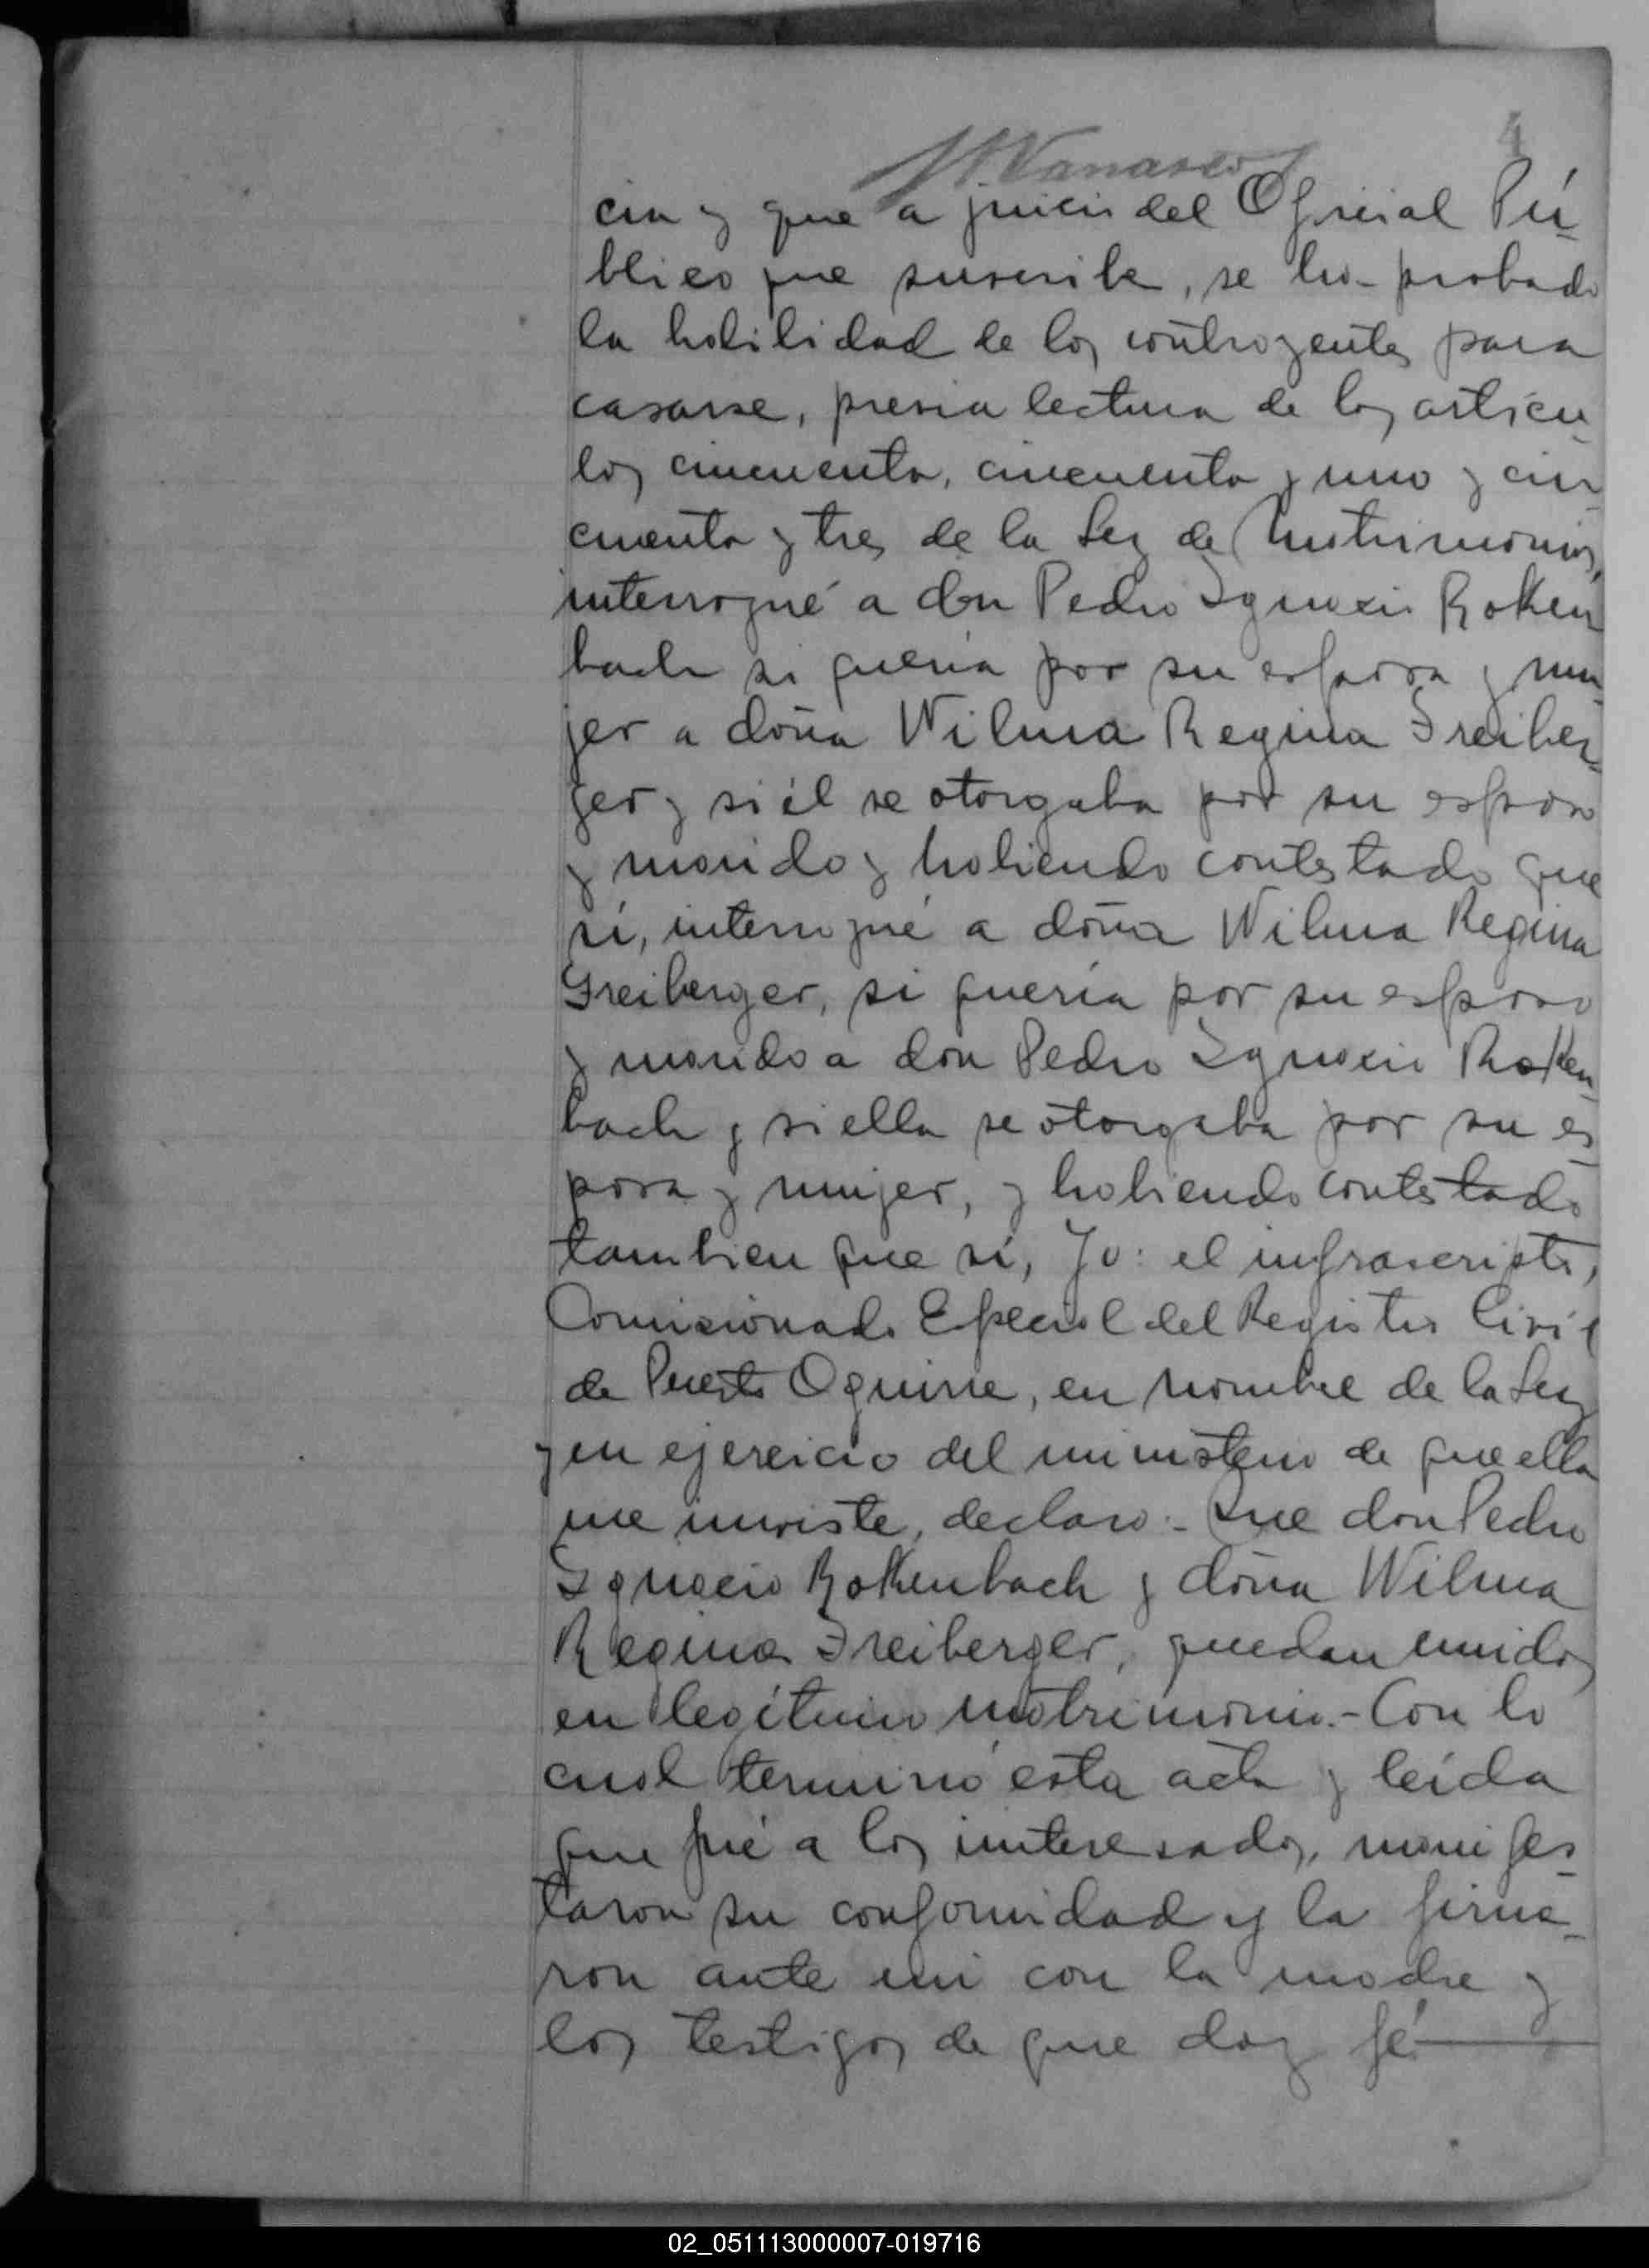 4
cia y que a juicio del Oficial Pú-
blico que suscribe, se ha probado
la habilidad de los contrayentes para
casarse, previa lectura de los artícu-
los cincuenta, cincuenta y uno y cin-
cuenta y tres de la Ley de Matrimonio,
interrogué a don Pedro Ignacio Rokem
bach si quería por su esposa y mu-
jer a doña Wilma Regina Freiber-
ger y si él se otorgaba por su esposo
y marido y habiendo contestado que
sí, interrogué a doña Wilma Regina
Freiberger, si quería por su esposo
y marido a don Pedro Ignacio Roken-
bach y si ella se otorgaba por su es-
posa y mujer, y habiendo contestado
tambien que sí, Yo: el infrascripto,
Comisionado Especial del Registro Civil
de Puerto Oguirre, en nombre de la Ley
y en ejercicio del ministerio de que ella
me inviste, declaro:- Que don Pedro
Ignacio Rokenbach y doña Wilma
Regina Freiberger, quedan unidos
en legítimo matrimonio.- Con lo
cual terminó esta acta y leída
que fué a los interesados, manifes-
taron su conformidad y la firma-
ron ante mi con la madre y
los testigos de que doy fé
02_051113000007-019716